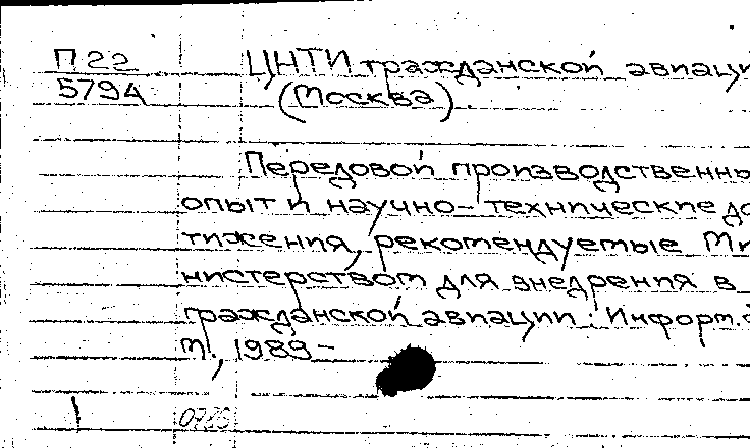 П22 ЦНТИ гражданской авиаци
5794 (Москва).
Передовой производственны
опыт и научно-технические до
тижения, рекомендуемые Ми
нистерством для внедрения в
гражданской авиации: Информ.
М., 1989-
1